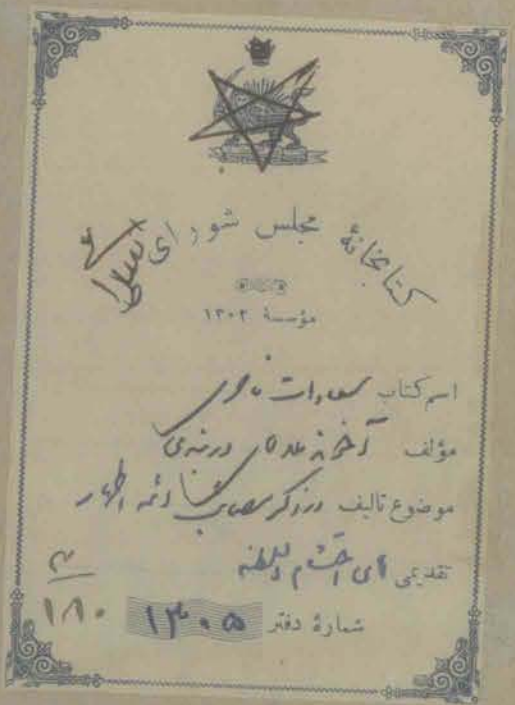 کتابخانهٔ مجلس شورای اسلامی
مؤسسهٔ ۱۳۰۲
اسم کتاب سعادات ناصری
مؤلف آخوند ملا آقا دربندی
موضوع تالیف در ذکر مصائب ائمه اطهار
تقدیمی آقای احتشام السلطنه
شمارهٔ دفتر ۱۳۰۰۵
۱۸۰